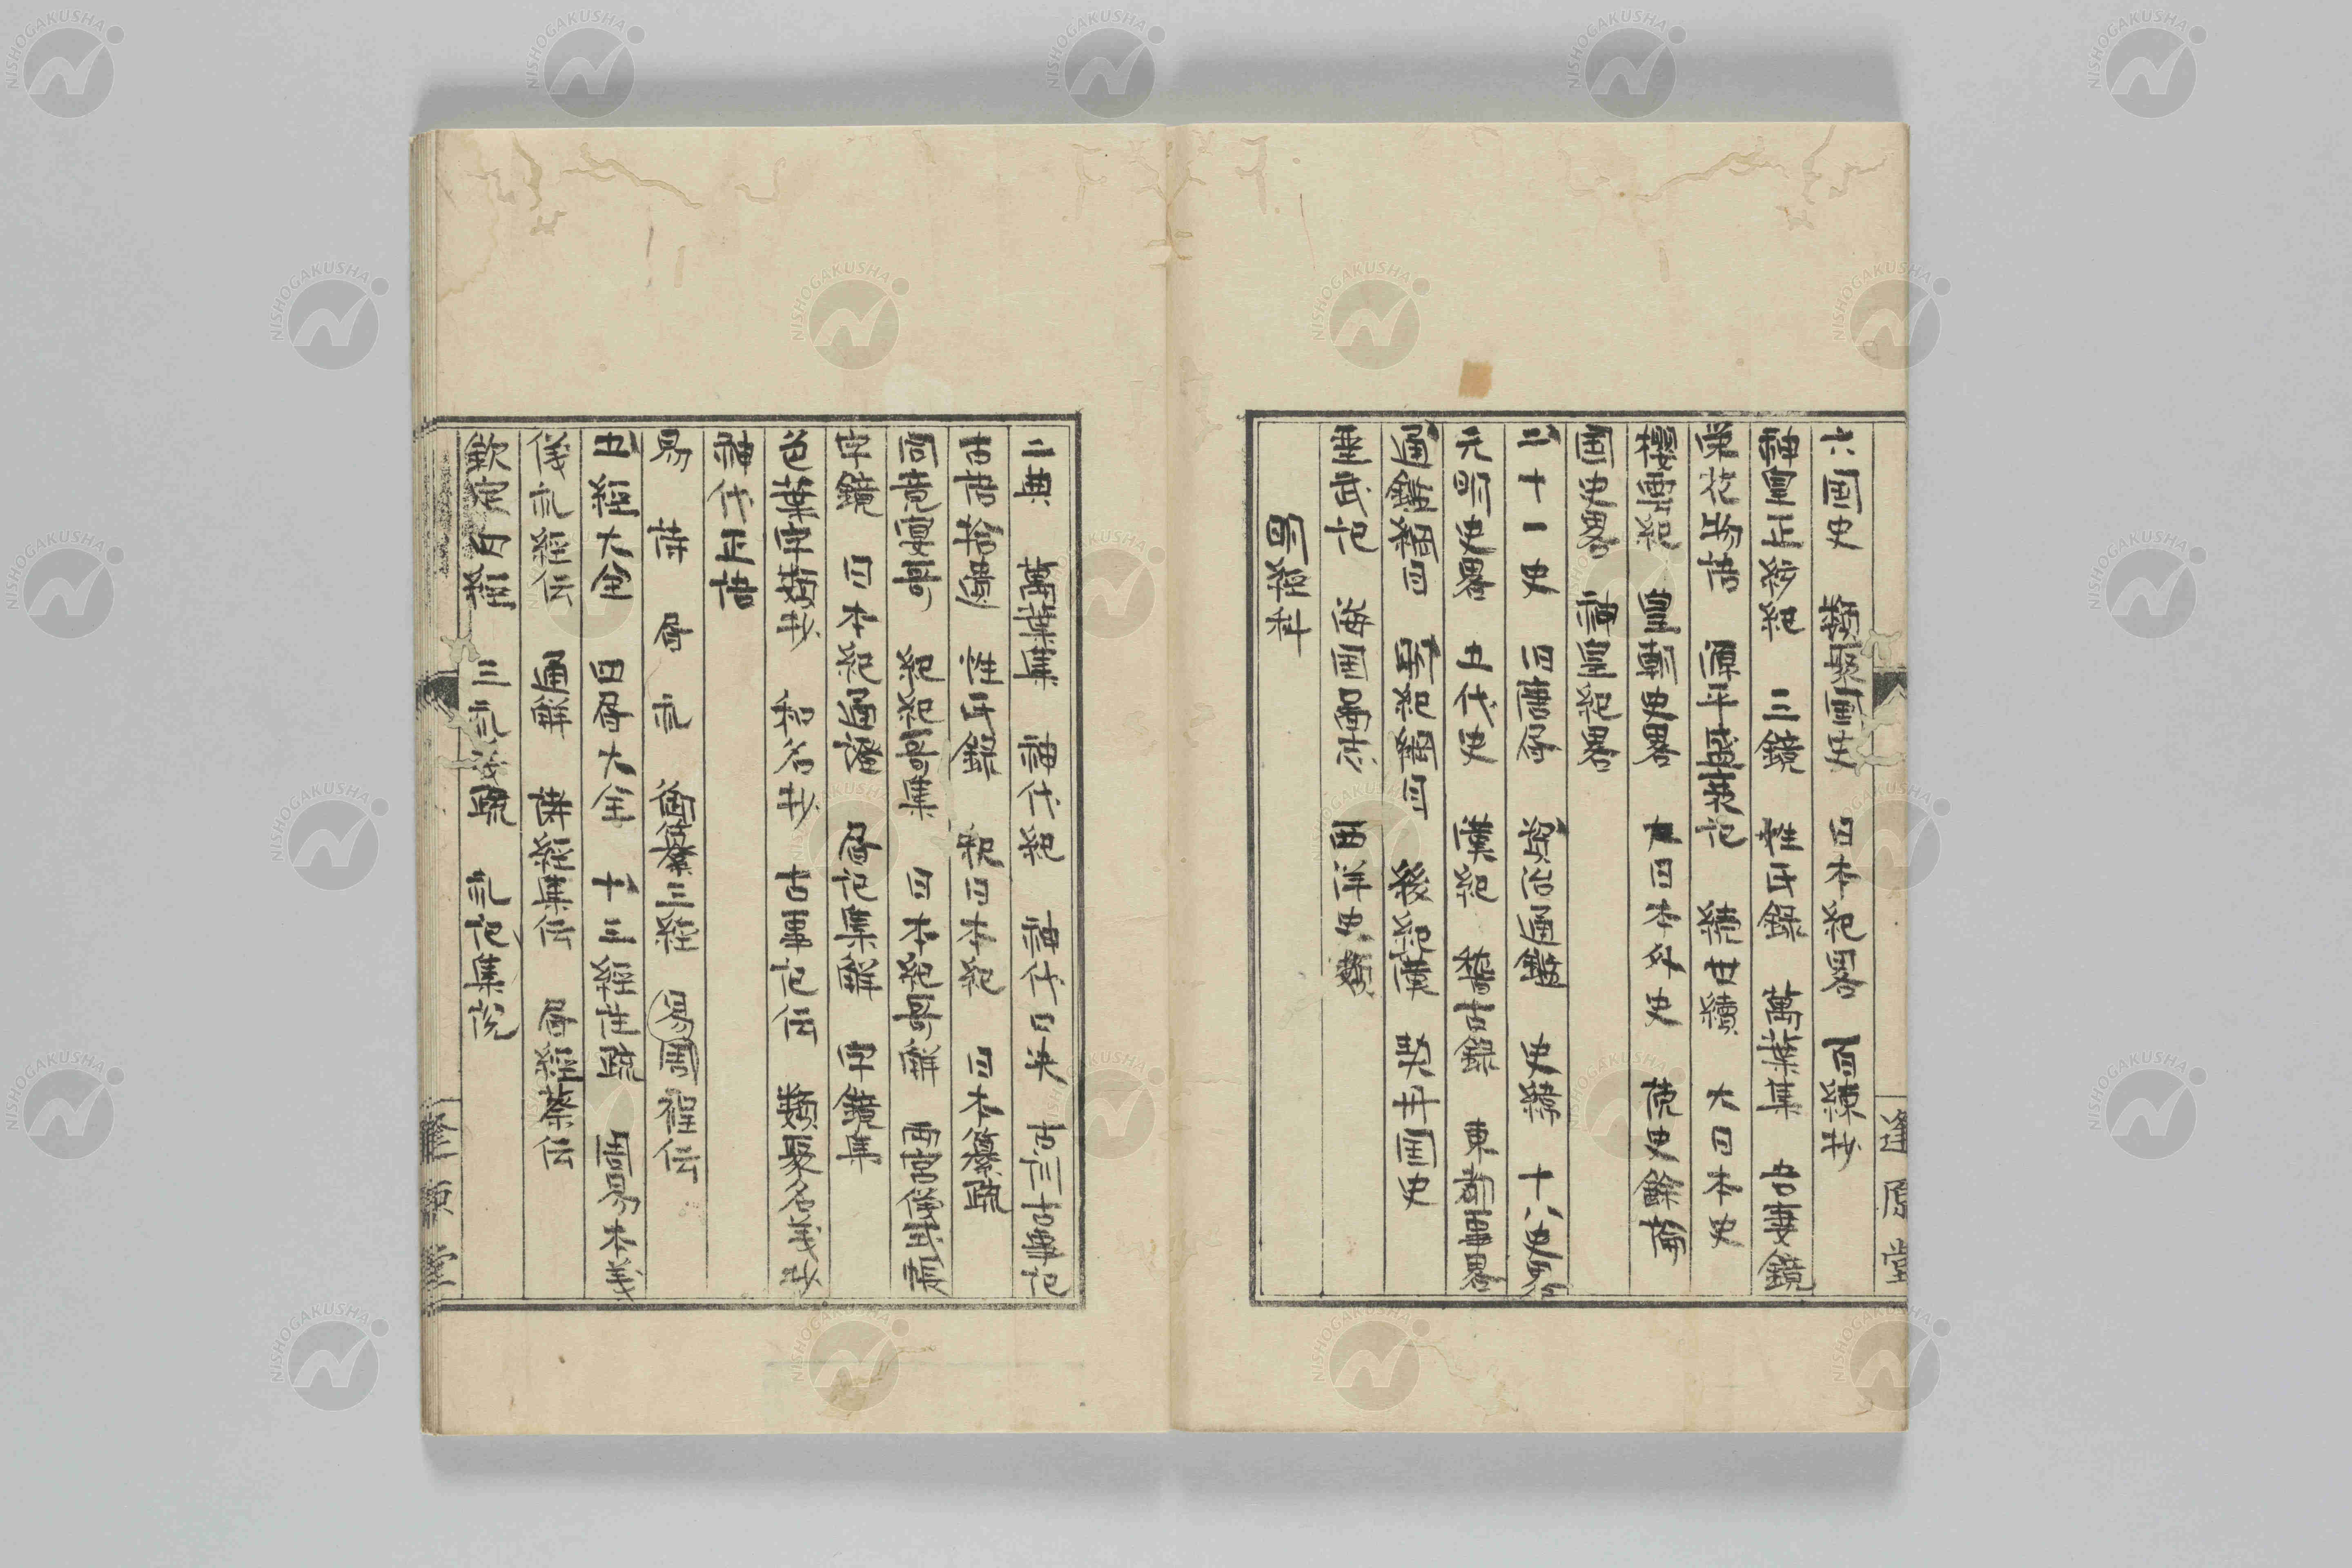 六国史 類聚国史 日本紀畧 百練抄
神皇正統紀 三鏡 姓氏録 萬葉集 吾妻鏡
栄花物語 源平盛衰記 続世継 大日本史
櫻雲紀 皇朝史畧 大日本外史 読史餘論
国史畧 神皇紀畧
二十一史 四庫 資治通鑑 史緯 十八史畧
元明史畧 五代史 漢紀 稽古録 東都事畧
通鑑綱目 明紀綱目 後紀漢 契丹国史
聖武記 海国図志 西洋史類
明経科
逢原堂
二典 萬葉集 神代紀 神代口决 古訓古事記
古語拾遺 姓氏録 釈日本紀 日本纂疏
同 紀紀哥集 日本紀哥解 西宮儀式張
字鏡 日本紀通證 書記集解 字鏡集
色葉字類抄 和名抄 古事記伝 類聚名義抄
神代正語
易 詩 書 礼 三経 易 周 程伝
五経大全 四書大全 十三経注疏 周易本義
儀礼経伝 通解 詩経集伝 書経蔡伝
欽定 経 三礼義疏 礼記集説
逢原堂
NISHOGAKUSHA